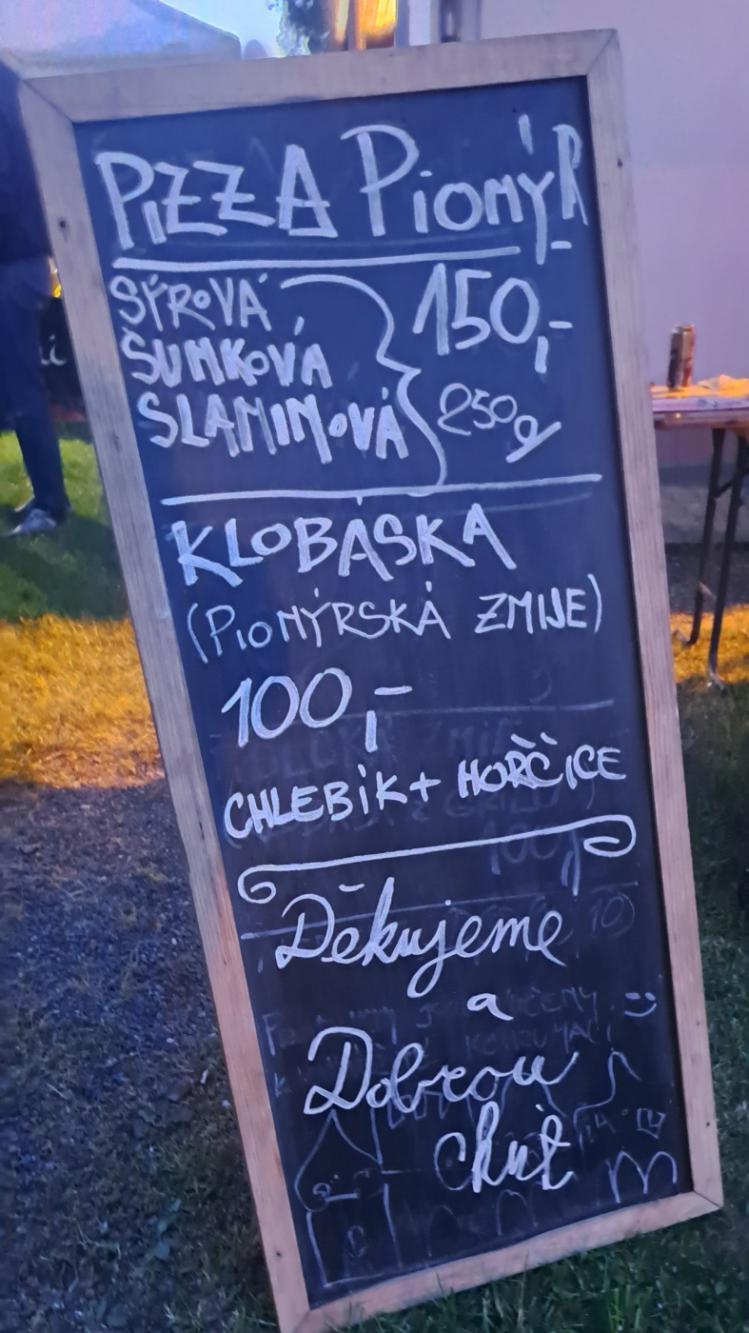 PIZZA PIONÝR
SÝROVÁ
ŠUNKOVÁ
SLANINOVÁ
150,-
250g
KLOBÁSKA
(PIONÝRSKÁ ZMIJE)
100,-
CHLEBÍK + HOŘČICE
Děkujeme
a
Dobrou
chuť